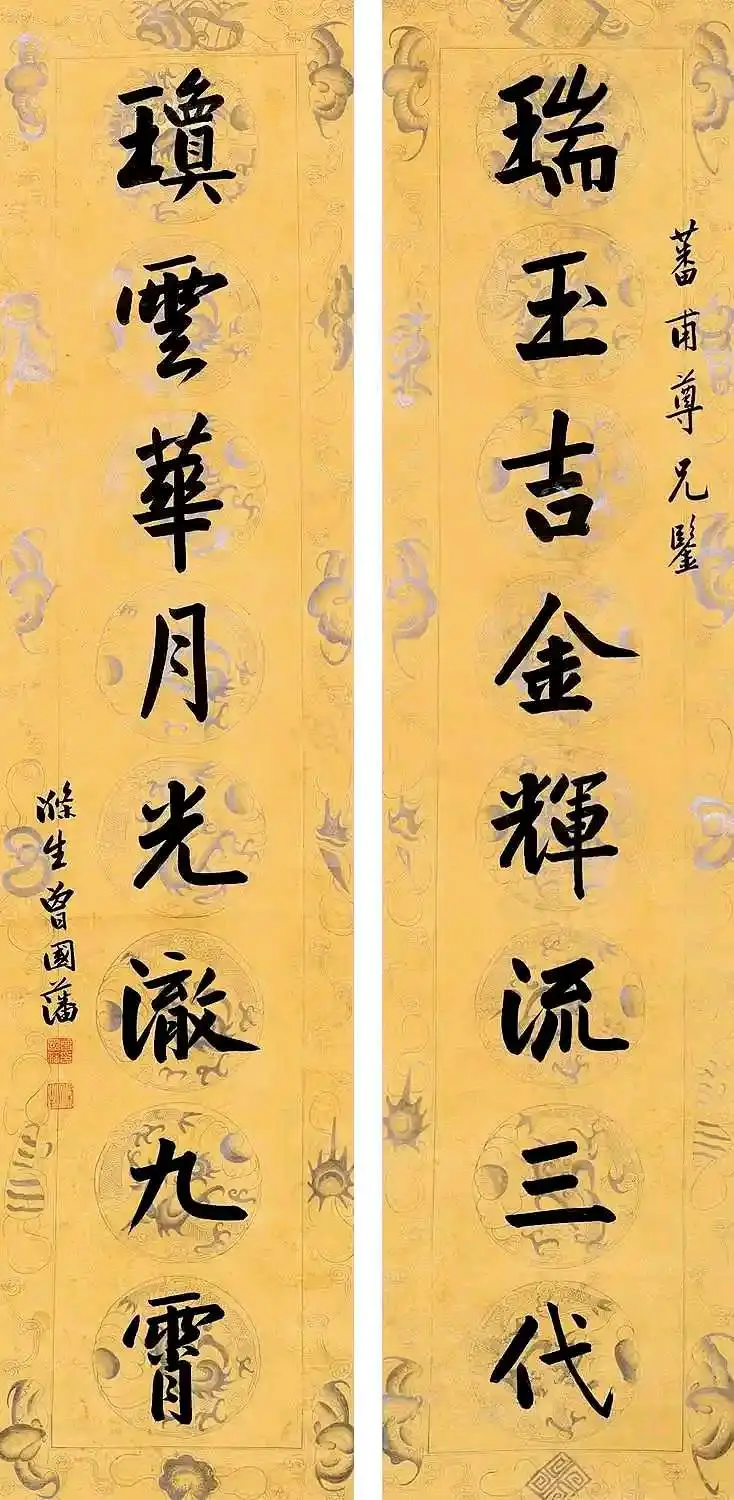 蕃甫尊兄鑒
瑞玉吉金輝流三代
瓊雲華月光澈九霄
滌生曾國藩